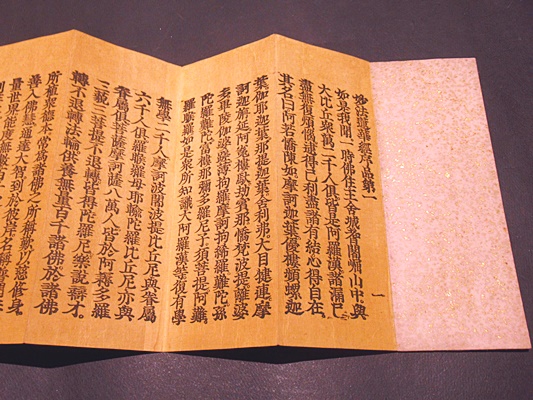 妙法蓮華經序品第一
如是我聞一時佛住王舍城耆闍崛山中與
大比丘衆萬二千人俱皆是阿羅漢諸漏已
盡無復煩惱逮得己利盡諸有結心得自在
其名曰阿若憍陳如摩訶迦葉優樓頻螺迦
一
葉伽耶迦葉那提迦葉舍利弗大目揵連摩
訶迦旃延阿㝹樓馱劫賓那憍梵波提離婆
多畢陵伽婆蹉薄拘羅摩訶拘絺羅難陀孫
陀羅難陀富樓那彌多羅尼子須菩提阿難
羅睺羅如是衆所知識大阿羅漢等復有學
無學二千人摩訶波闍波提比丘尼與眷屬
六千人俱羅睺羅母耶輸陀羅比丘尼亦與
眷屬俱菩薩摩訶薩八萬人皆於阿耨多羅
三藐三菩提不退轉皆得陀羅尼樂說辯才
轉不退轉法輪供養無量百千諸佛於諸佛
所植衆德本常爲諸佛之所稱歎以慈修身
善入佛慧通達大智到於彼岸名稱普聞無
量世界能度無數百千